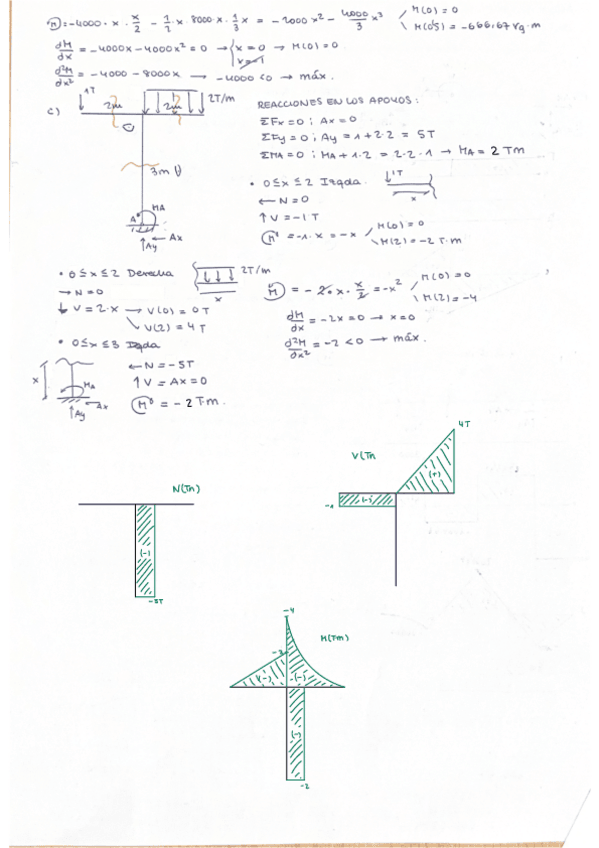 M = -4000 · x · x/2 - 1/2 · x · 8000 · x · 1/3 x = -2000x² - 4000/3 x³ / M(0) = 0
\ M(0'5) = -666,67 kg·m
dM/dx = -4000x - 4000x² = 0 → x=0 → M(0) = 0
x=-1
d²M/dx² = -4000 - 8000x → -4000 <0 → máx.
c)
1T
2m
2m
2T/m
3m
A
MA
Ax
Ay
REACCIONES EN LOS APOYOS:
ΣFx = 0 ; Ax = 0
ΣFy = 0 ; Ay = 1 + 2·2 = 5T
ΣMA = 0 ; MA + 1·2 = 2·2·1 → MA = 2 Tm
• 0 ≤ x ≤ 2 Izqda.
1T
x
← N = 0
↑ V = -1 T
M = -1·x = -x / M(0) = 0
\ M(2) = -2 T·m
• 0 ≤ x ≤ 2 Derecha
2T/m
x
→ N = 0
↓ V = 2·x → V(0) = 0T
V(2) = 4T
M = -2·x·x/2 = -x² / M(0) = 0
\ M(2) = -4
dM/dx = -2x = 0 → x = 0
d²M/dx² = -2 < 0 → máx.
• 0 ≤ x ≤ 3 Izqda
x
MA
Ax
Ay
← N = -5T
↑ V = Ax = 0
M = -2 T·m.
N(Tn)
(-)
-5T
V(Tn
4T
(+)
(-)
-1
M(Tm)
-4
-2
(-)
(-)
(-)
-2